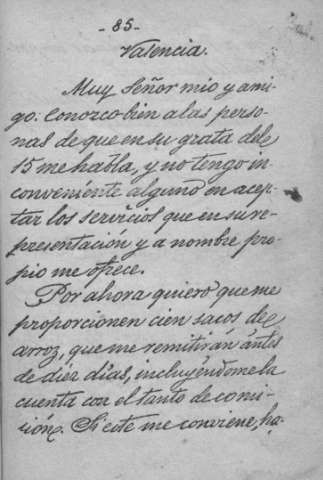 - 85 -
Valencia.
Muy Señor mio y ami-
go. Conozco bien a las perso-
nas de que en su grata del
15 me habla, y no tengo in-
conveniente alguno en acep-
tar los servicios que en su re-
presentación y a nombre pro-
pio me ofrece.
Por ahora quiero que me
proporcionen cien sacos de
arroz, que me remitirán antes
de diez días, incluyéndome la
cuenta con el tanto de comi-
sión. Si este me conviene, ha-